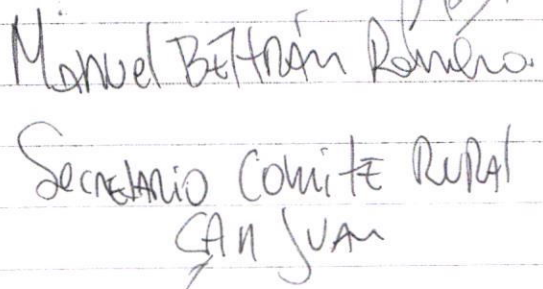 Manuel Beltrán Romero
Secretario Comite Rural
San Juan